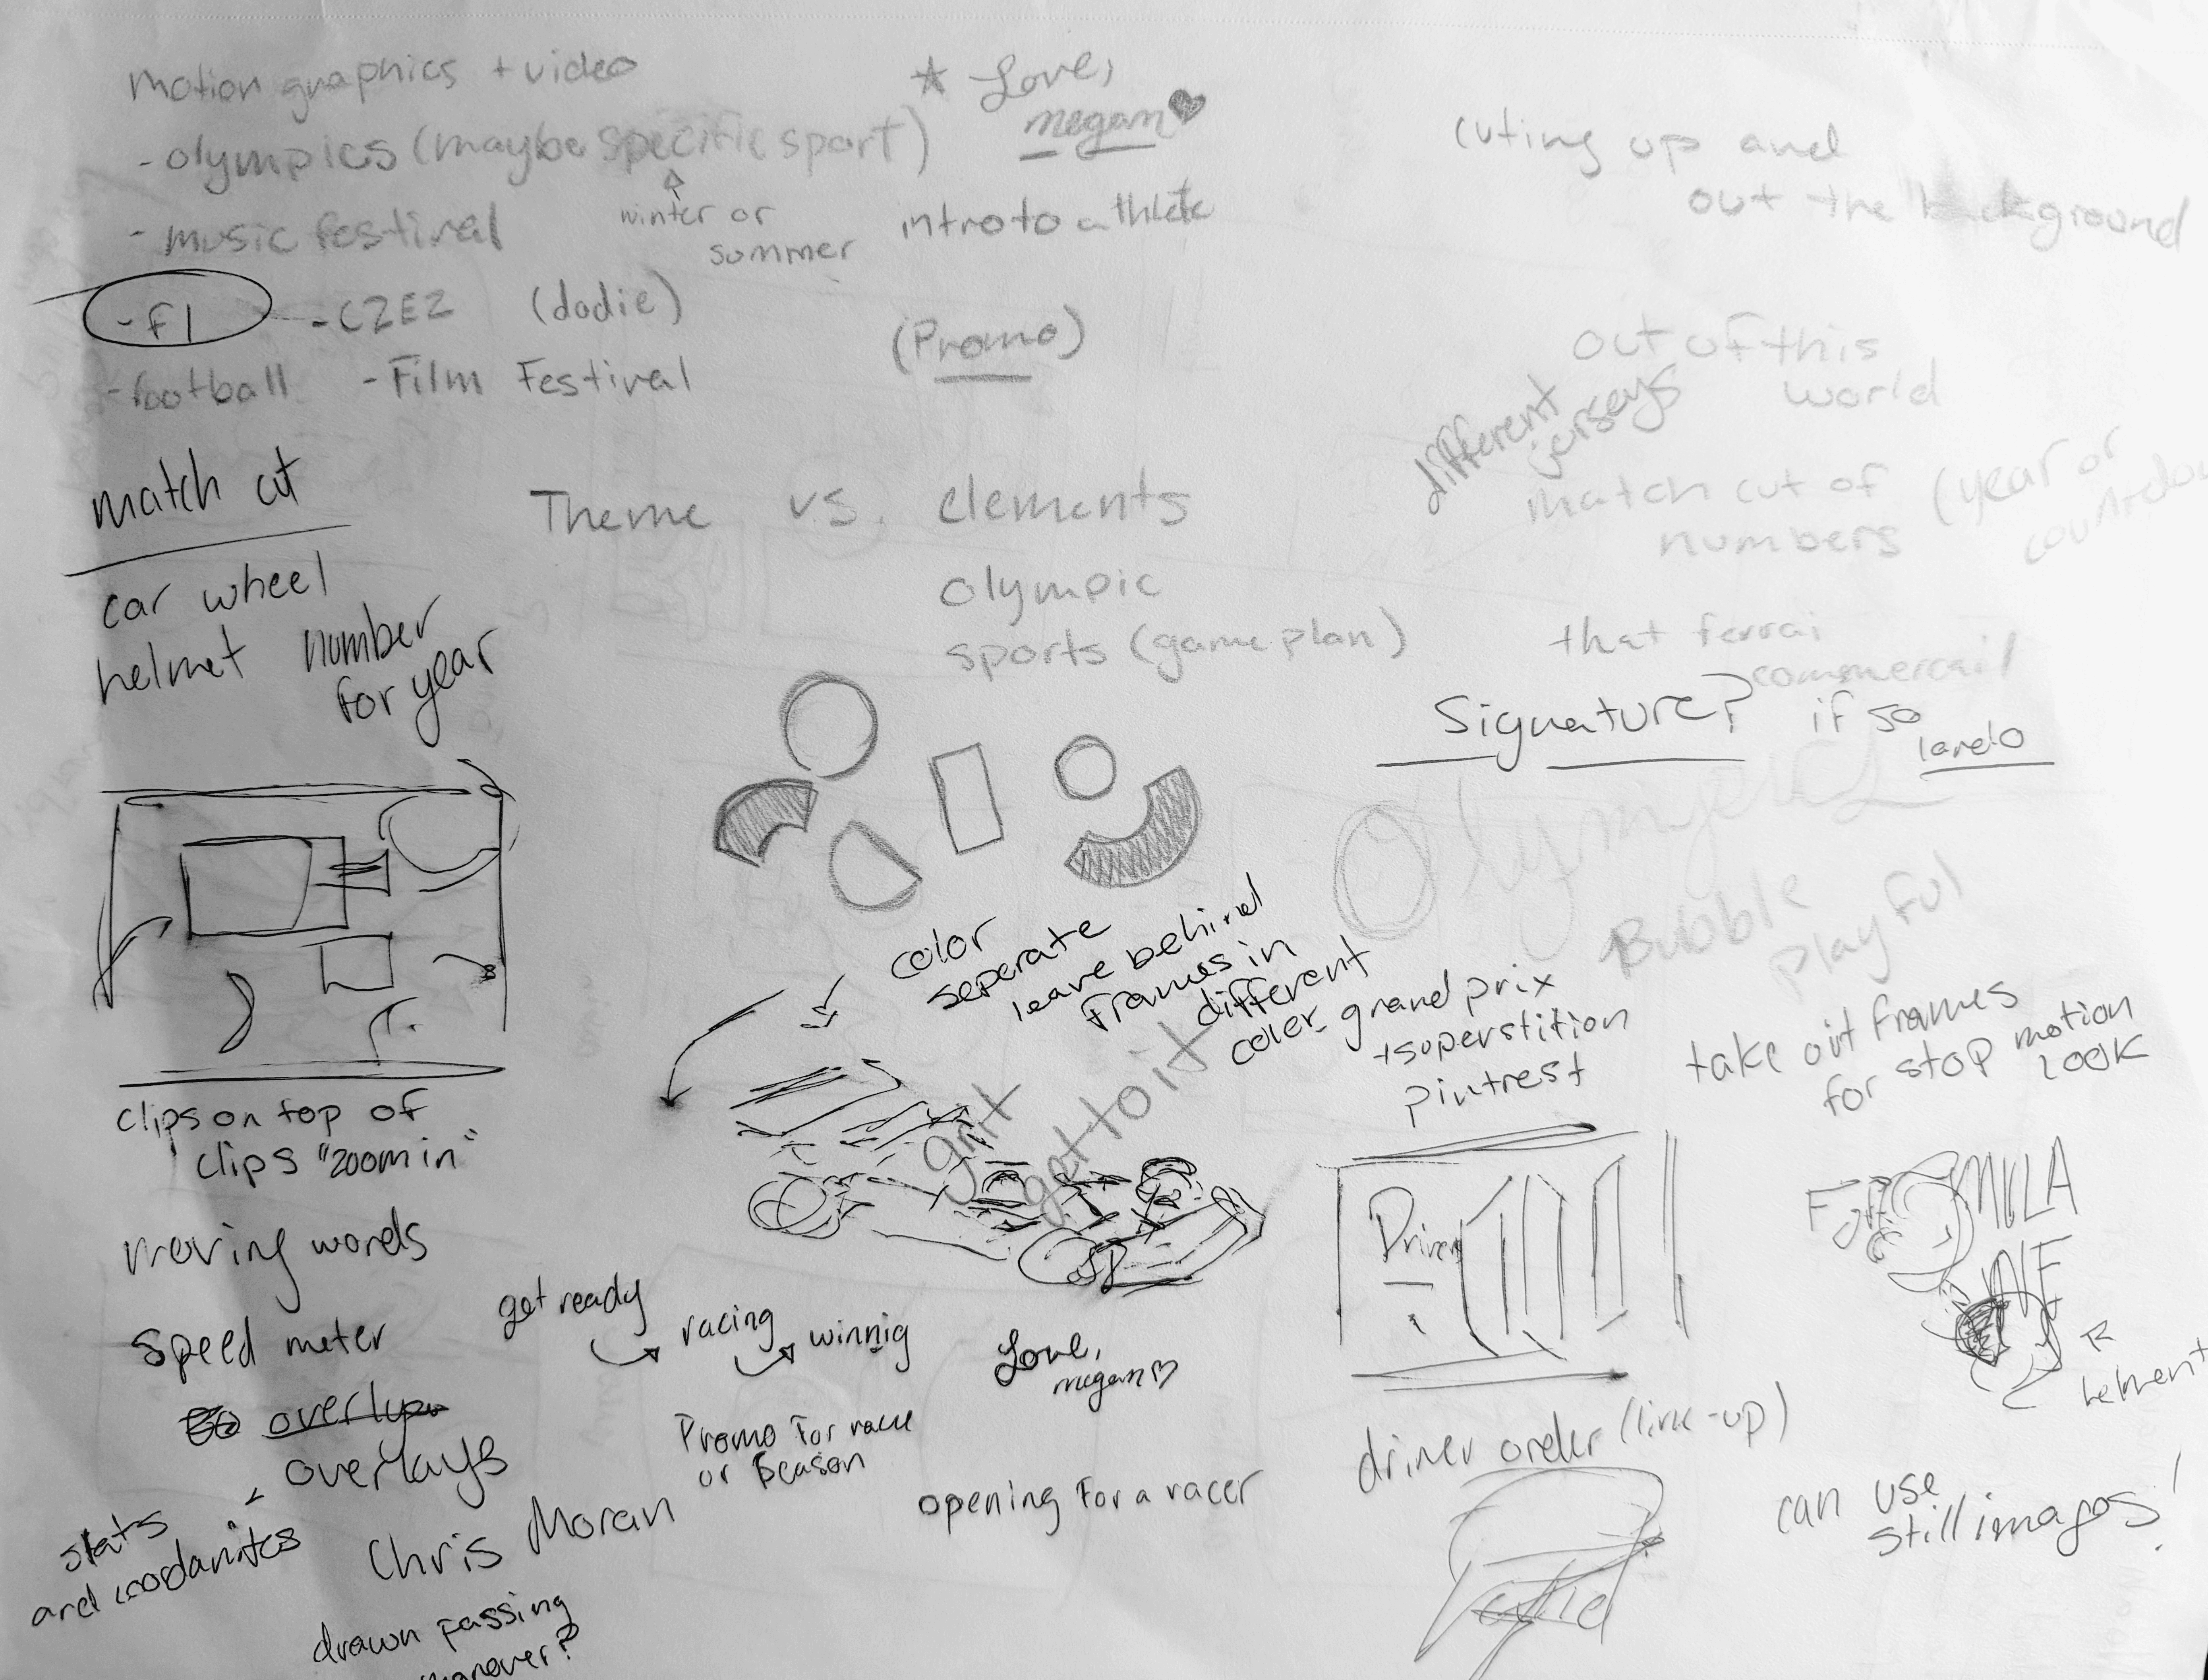 motion graphics + video
- olympics (maybe specific sport)
winter or
summer
- music festival
- F1
- C2E2
(dodie)
- football
- Film Festival
☆ Love,
megan♥
intro to athlete
(Promo)
cuting up and
out the background
out of this
world
different
jerseys
match cut of
numbers
(year or
that ferrai
commercail
Signature? if so
lando
match cut
car wheel
helmet
number
for year
Theme vs. elements
olympic
sports (game plan)
Bubble
playful
color
seperate
leave behind
frames in
different
color
grand prix
+superstition
pintrest
take out frames
for stop motion
look
grit
get to it
clips on top of
clips "zoom in"
moving words
speed meter
overlays
stats
and coordanites
Chris Moran
drawn passing
manover?
get ready
racing
winnig
Love,
megan♡
Promo for race
or season
opening for a racer
Driver
driver order (line-up)
FORMULA
ONE
helment
can use
still images!